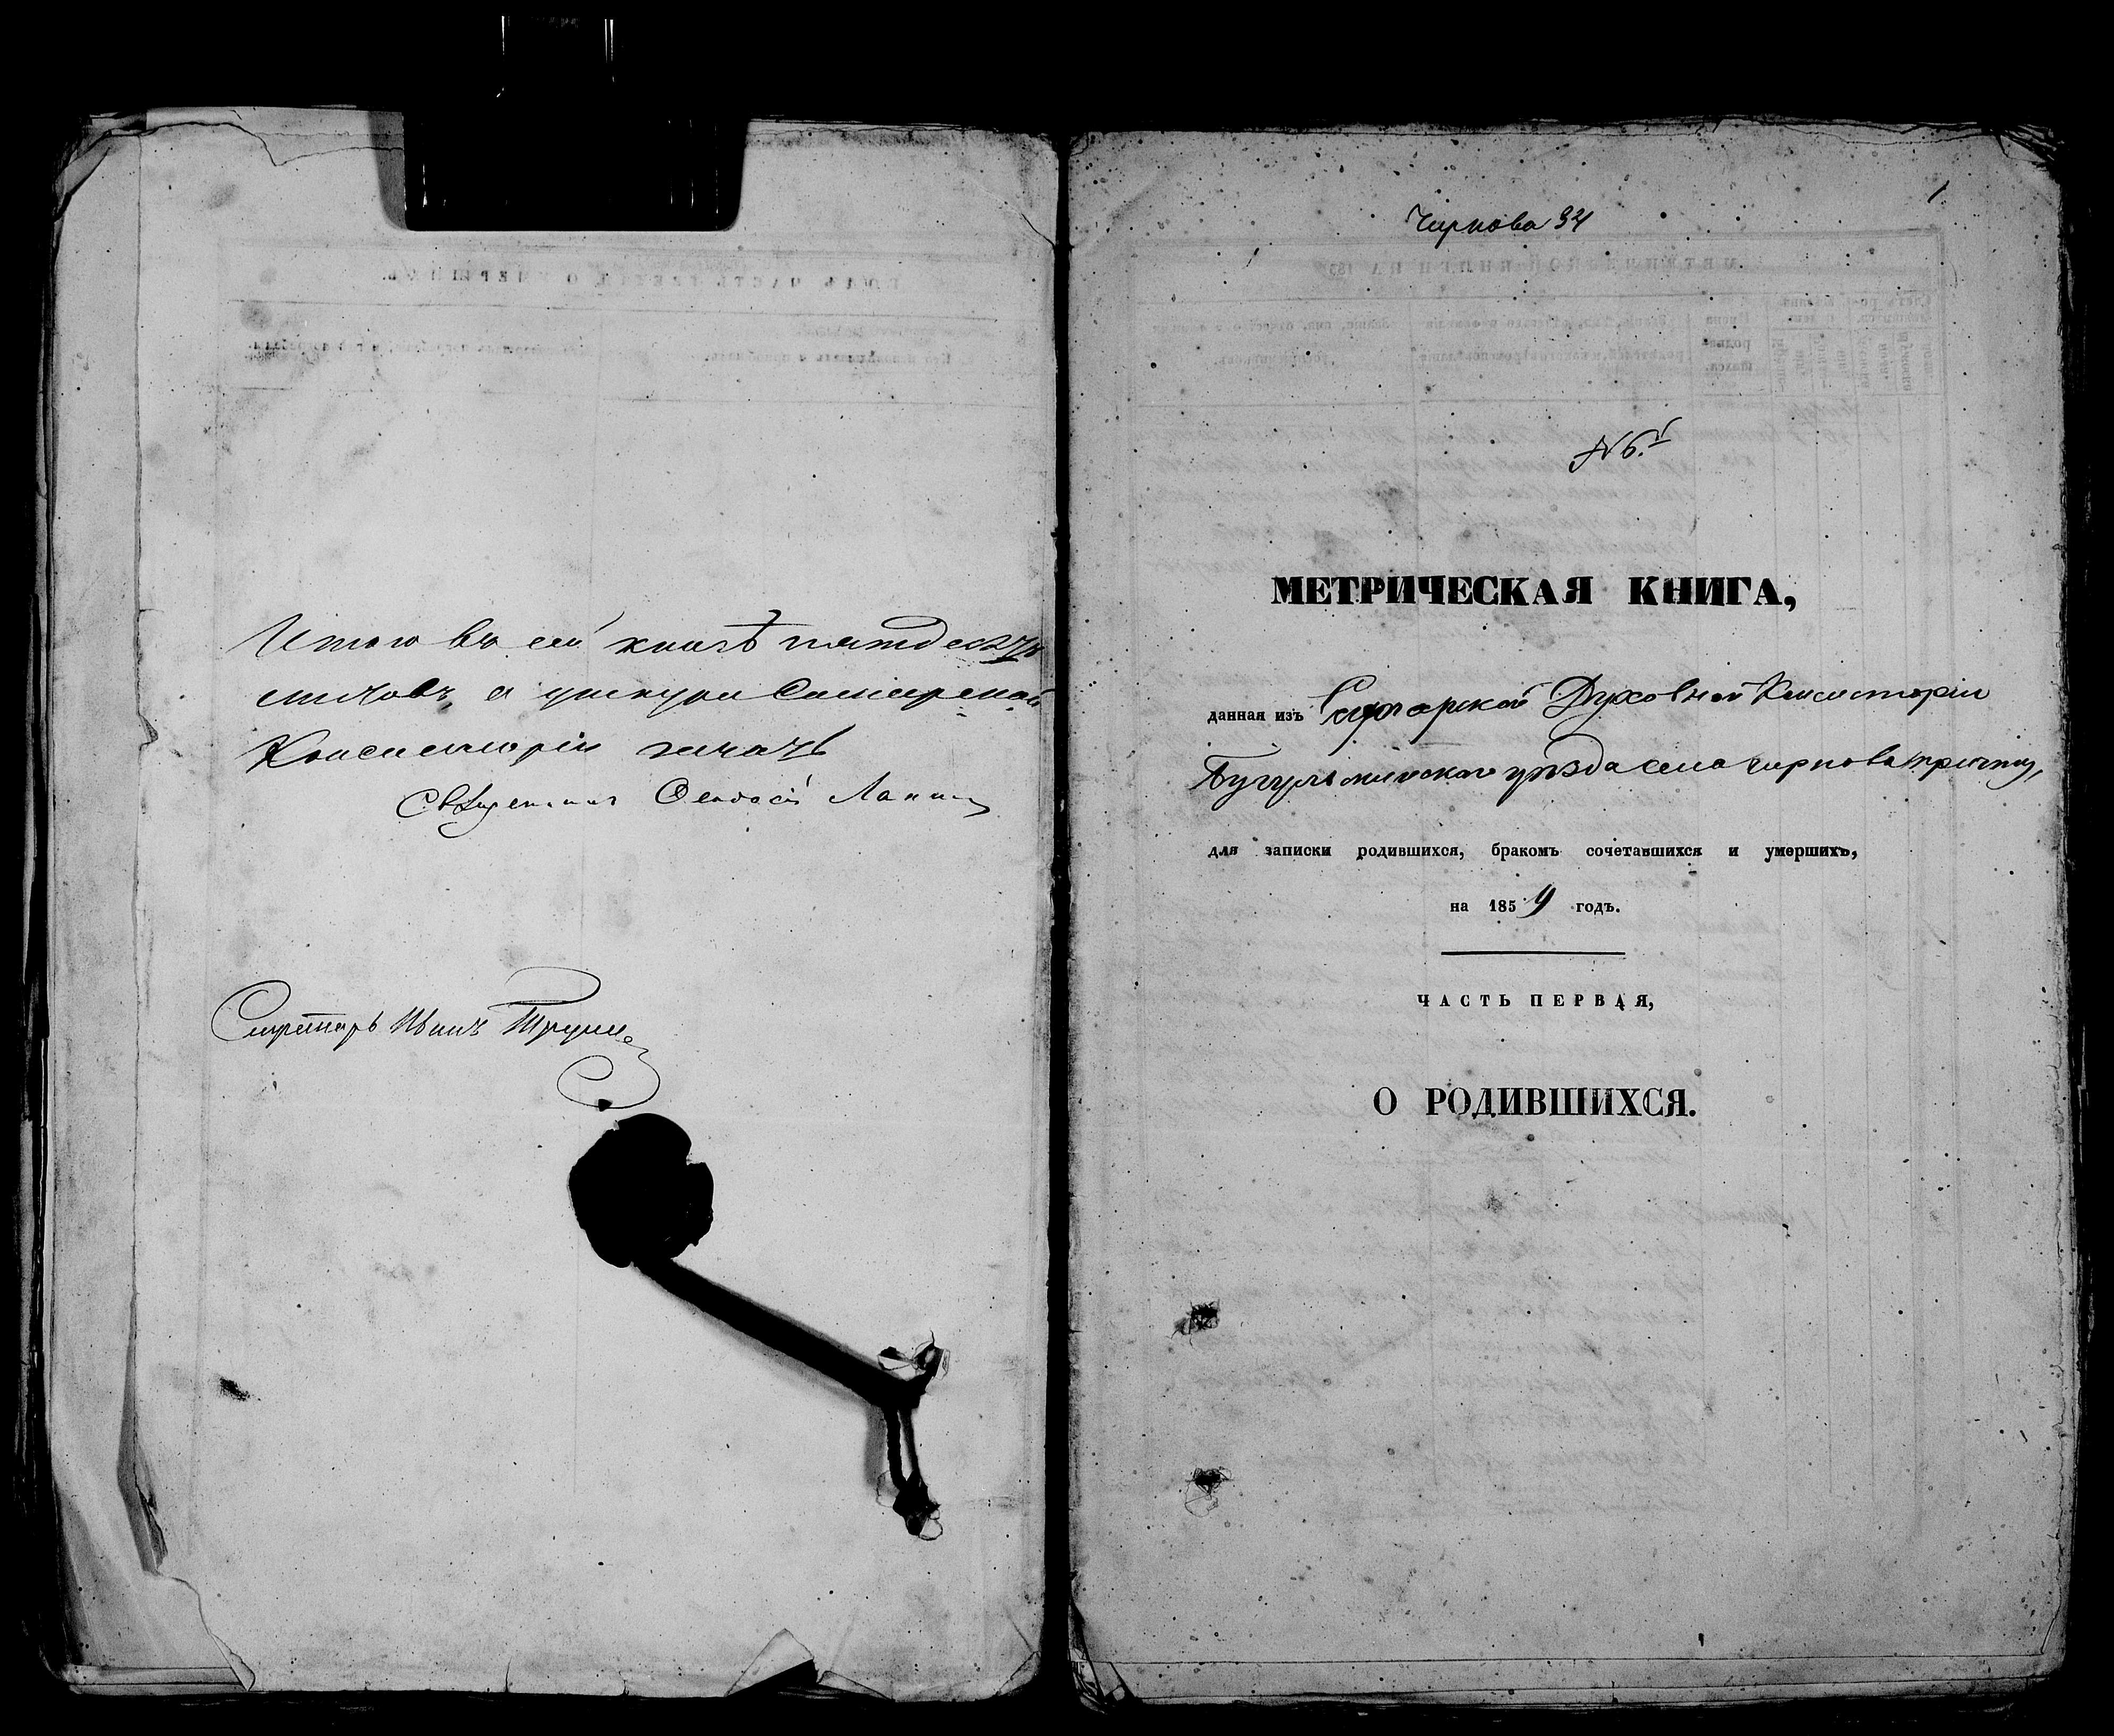 Итого въ сей книгѣ пятдесятъ
листовъ, а у шнура Самарской
Консисторіи печать
Священникъ Ѳеодосій
Секретарь Иванъ
1
Чиркова 34
№ 6.й
МЕТРИЧЕСКАЯ КНИГА,
данная изъ Самарской Духовной Консисторіи
Бугульминскаго уѣзда села Чиркова причту,
для записки родившихся, бракомъ сочетавшихся и умершихъ,
на 1859 годъ.
ЧАСТЬ ПЕРВАЯ,
О РОДИВШИХСЯ.